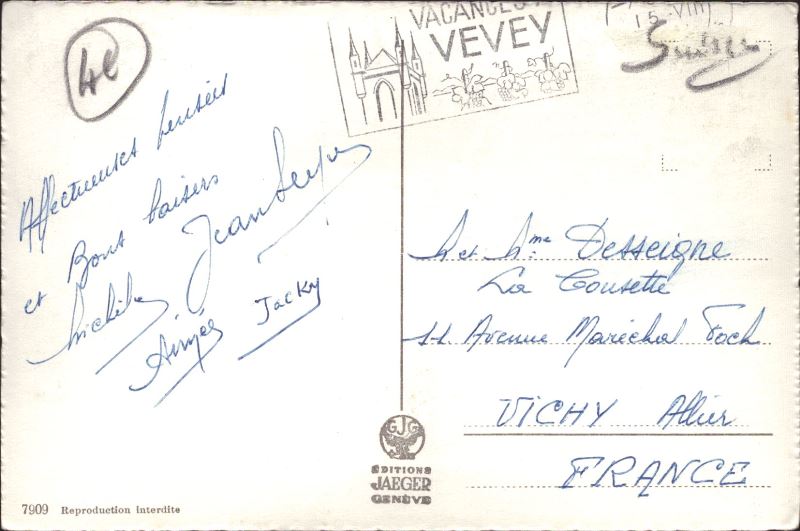 4€
VACANCES À
VEVEY
15.VIII
Suisse
Affectueuses pensées
et Bons baisers
Jean Serge
Michèle
Aimée
Jacky
M et Mme Desseigne
La Cousette
11 Avenue Maréchal Foch
VICHY Allier
FRANCE
GJG
ÉDITIONS
JAEGER
GENÈVE
7909 Reproduction interdite